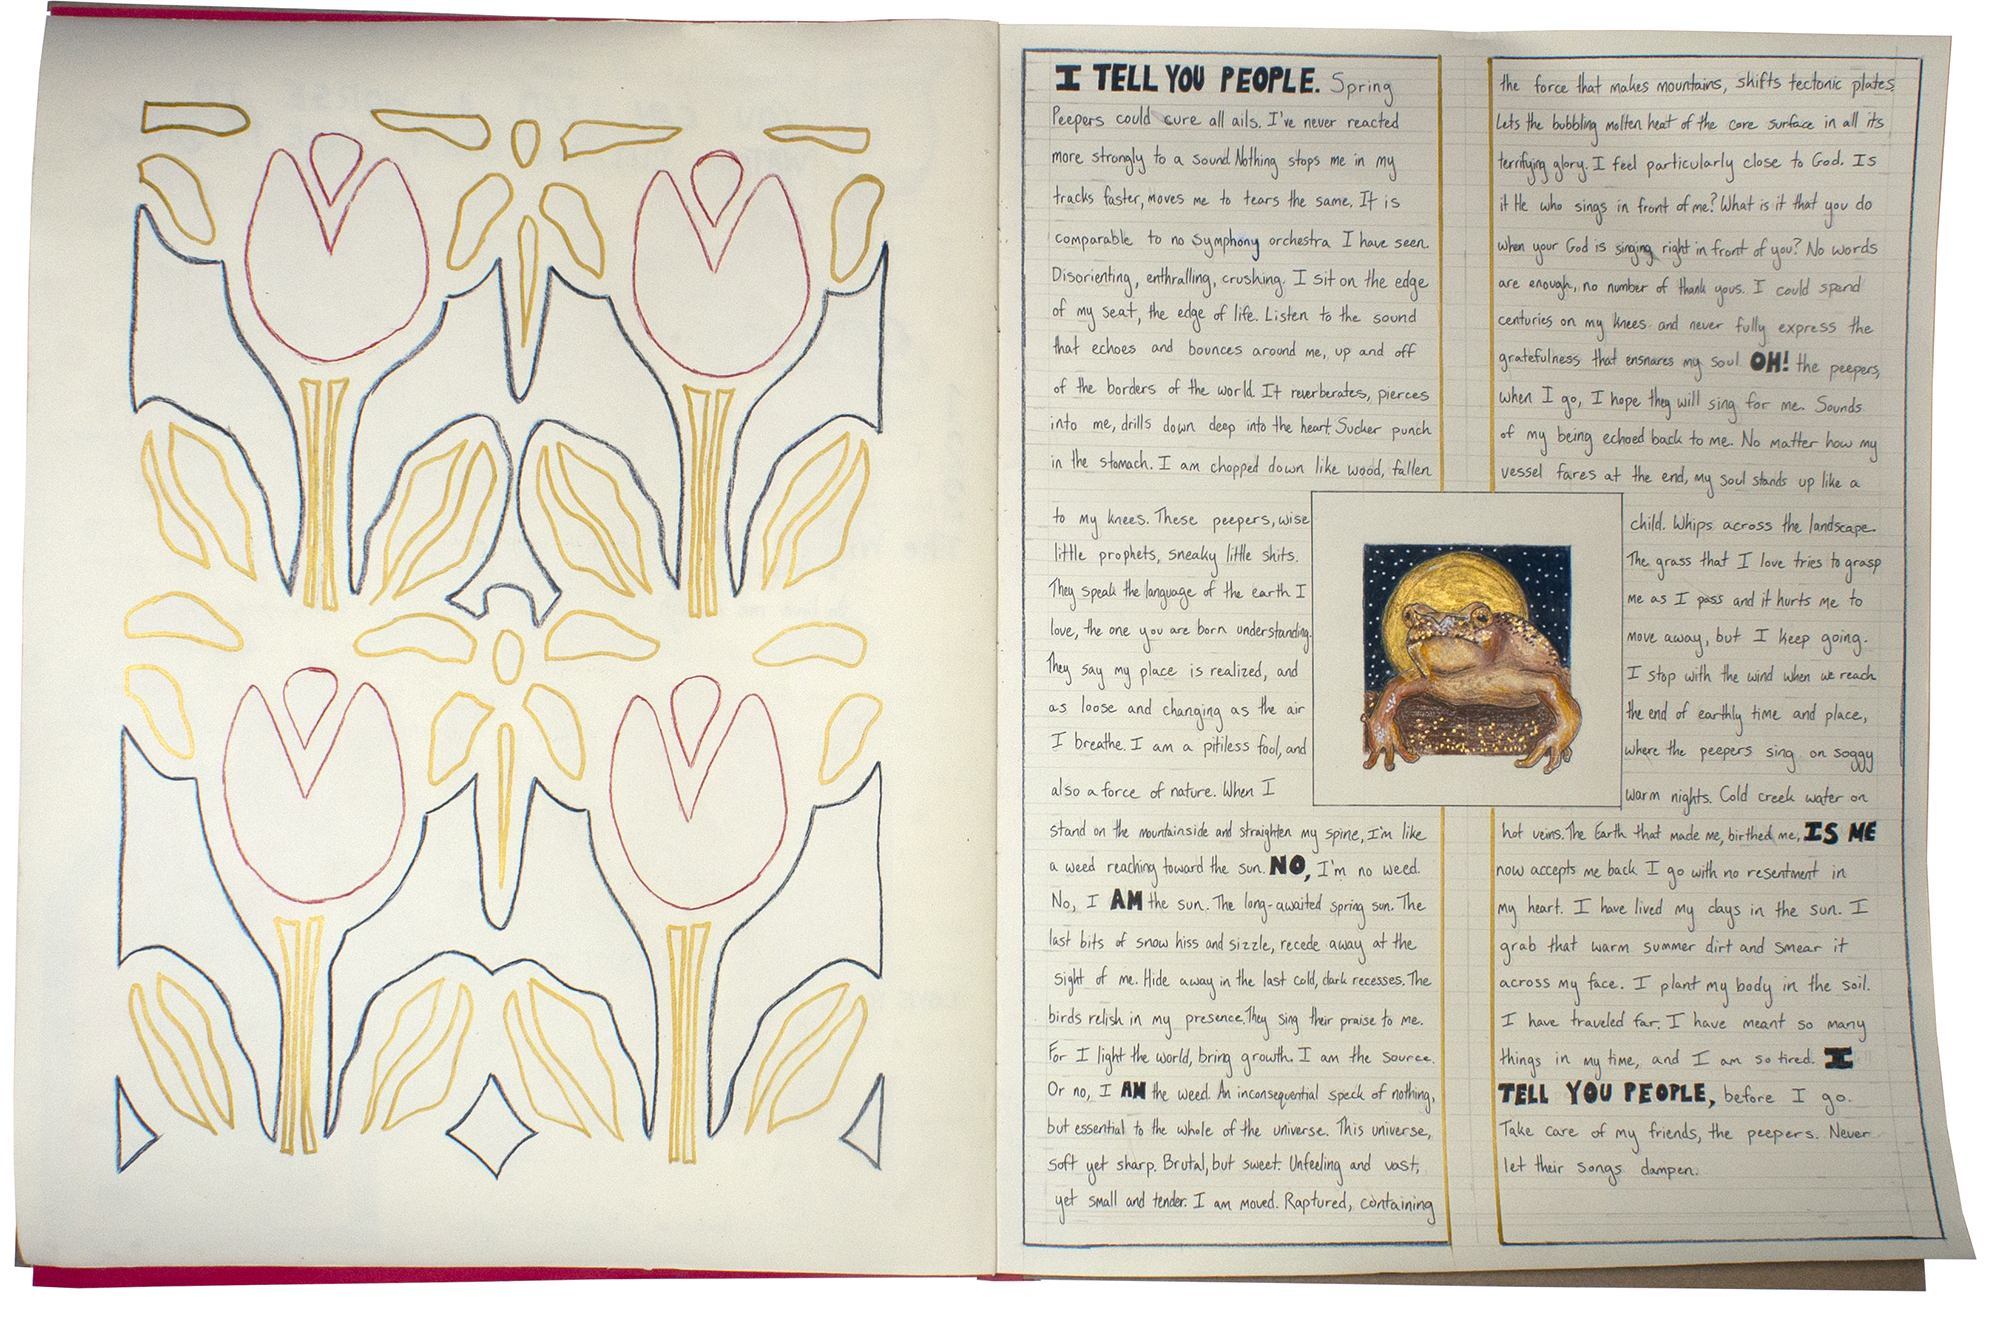 I TELL YOU PEOPLE. Spring
Peepers could cure all ails. I've never reacted
more strongly to a sound. Nothing stops me in my
tracks faster, moves me to tears the same. It is
comparable to no symphony orchestra I have seen.
Disorienting, enthralling, crushing. I sit on the edge
of my seat, the edge of life. Listen to the sound
that echoes and bounces around me, up and off
of the borders of the world. It reverberates, pierces
into me, drills down deep into the heart. Sucker punch
in the stomach. I am chopped down like wood, fallen
to my knees. These peepers, wise
little prophets, sneaky little shits.
They speak the language of the earth I
love, the one you are born understanding.
They say my place is realized, and
as loose and changing as the air
I breathe. I am a pitiless fool, and
also a force of nature. When I
stand on the mountainside and straighten my spine, I'm like
a weed reaching toward the sun. NO, I'm no weed.
No, I AM the sun. The long-awaited spring sun. The
last bits of snow hiss and sizzle, recede away at the
sight of me. Hide away in the last cold, dark recesses. The
birds relish in my presence. They sing their praise to me.
For I light the world, bring growth. I am the source.
Or no, I AM the weed. An inconsequential speck of nothing,
but essential to the whole of the universe. This universe,
soft yet sharp. Brutal, but sweet. Unfeeling and vast,
yet small and tender. I am moved. Raptured, containing
the force that makes mountains, shifts tectonic plates.
Lets the bubbling molten heat of the core surface in all its
terrifying glory. I feel particularly close to God. Is
it He who sings in front of me? What is it that you do
when your God is singing right in front of you? No words
are enough, no number of thank yous. I could spend
centuries on my knees and never fully express the
gratefulness that ensnares my soul. OH! the peepers,
when I go, I hope they will sing for me. Sounds
of my being echoed back to me. No matter how my
vessel fares at the end, my soul stands up like a
child. Whips across the landscape.
The grass that I love tries to grasp
me as I pass and it hurts me to
move away, but I keep going.
I stop with the wind when we reach
the end of earthly time and place,
where the peepers sing on soggy
warm nights. Cold creek water on
hot veins. The Earth that made me, birthed me, IS ME
now accepts me back. I go with no resentment in
my heart. I have lived my days in the sun. I
grab that warm summer dirt and smear it
across my face. I plant my body in the soil.
I have traveled far. I have meant so many
things in my time, and I am so tired. I
TELL YOU PEOPLE, before I go.
Take care of my friends, the peepers. Never
let their songs dampen.